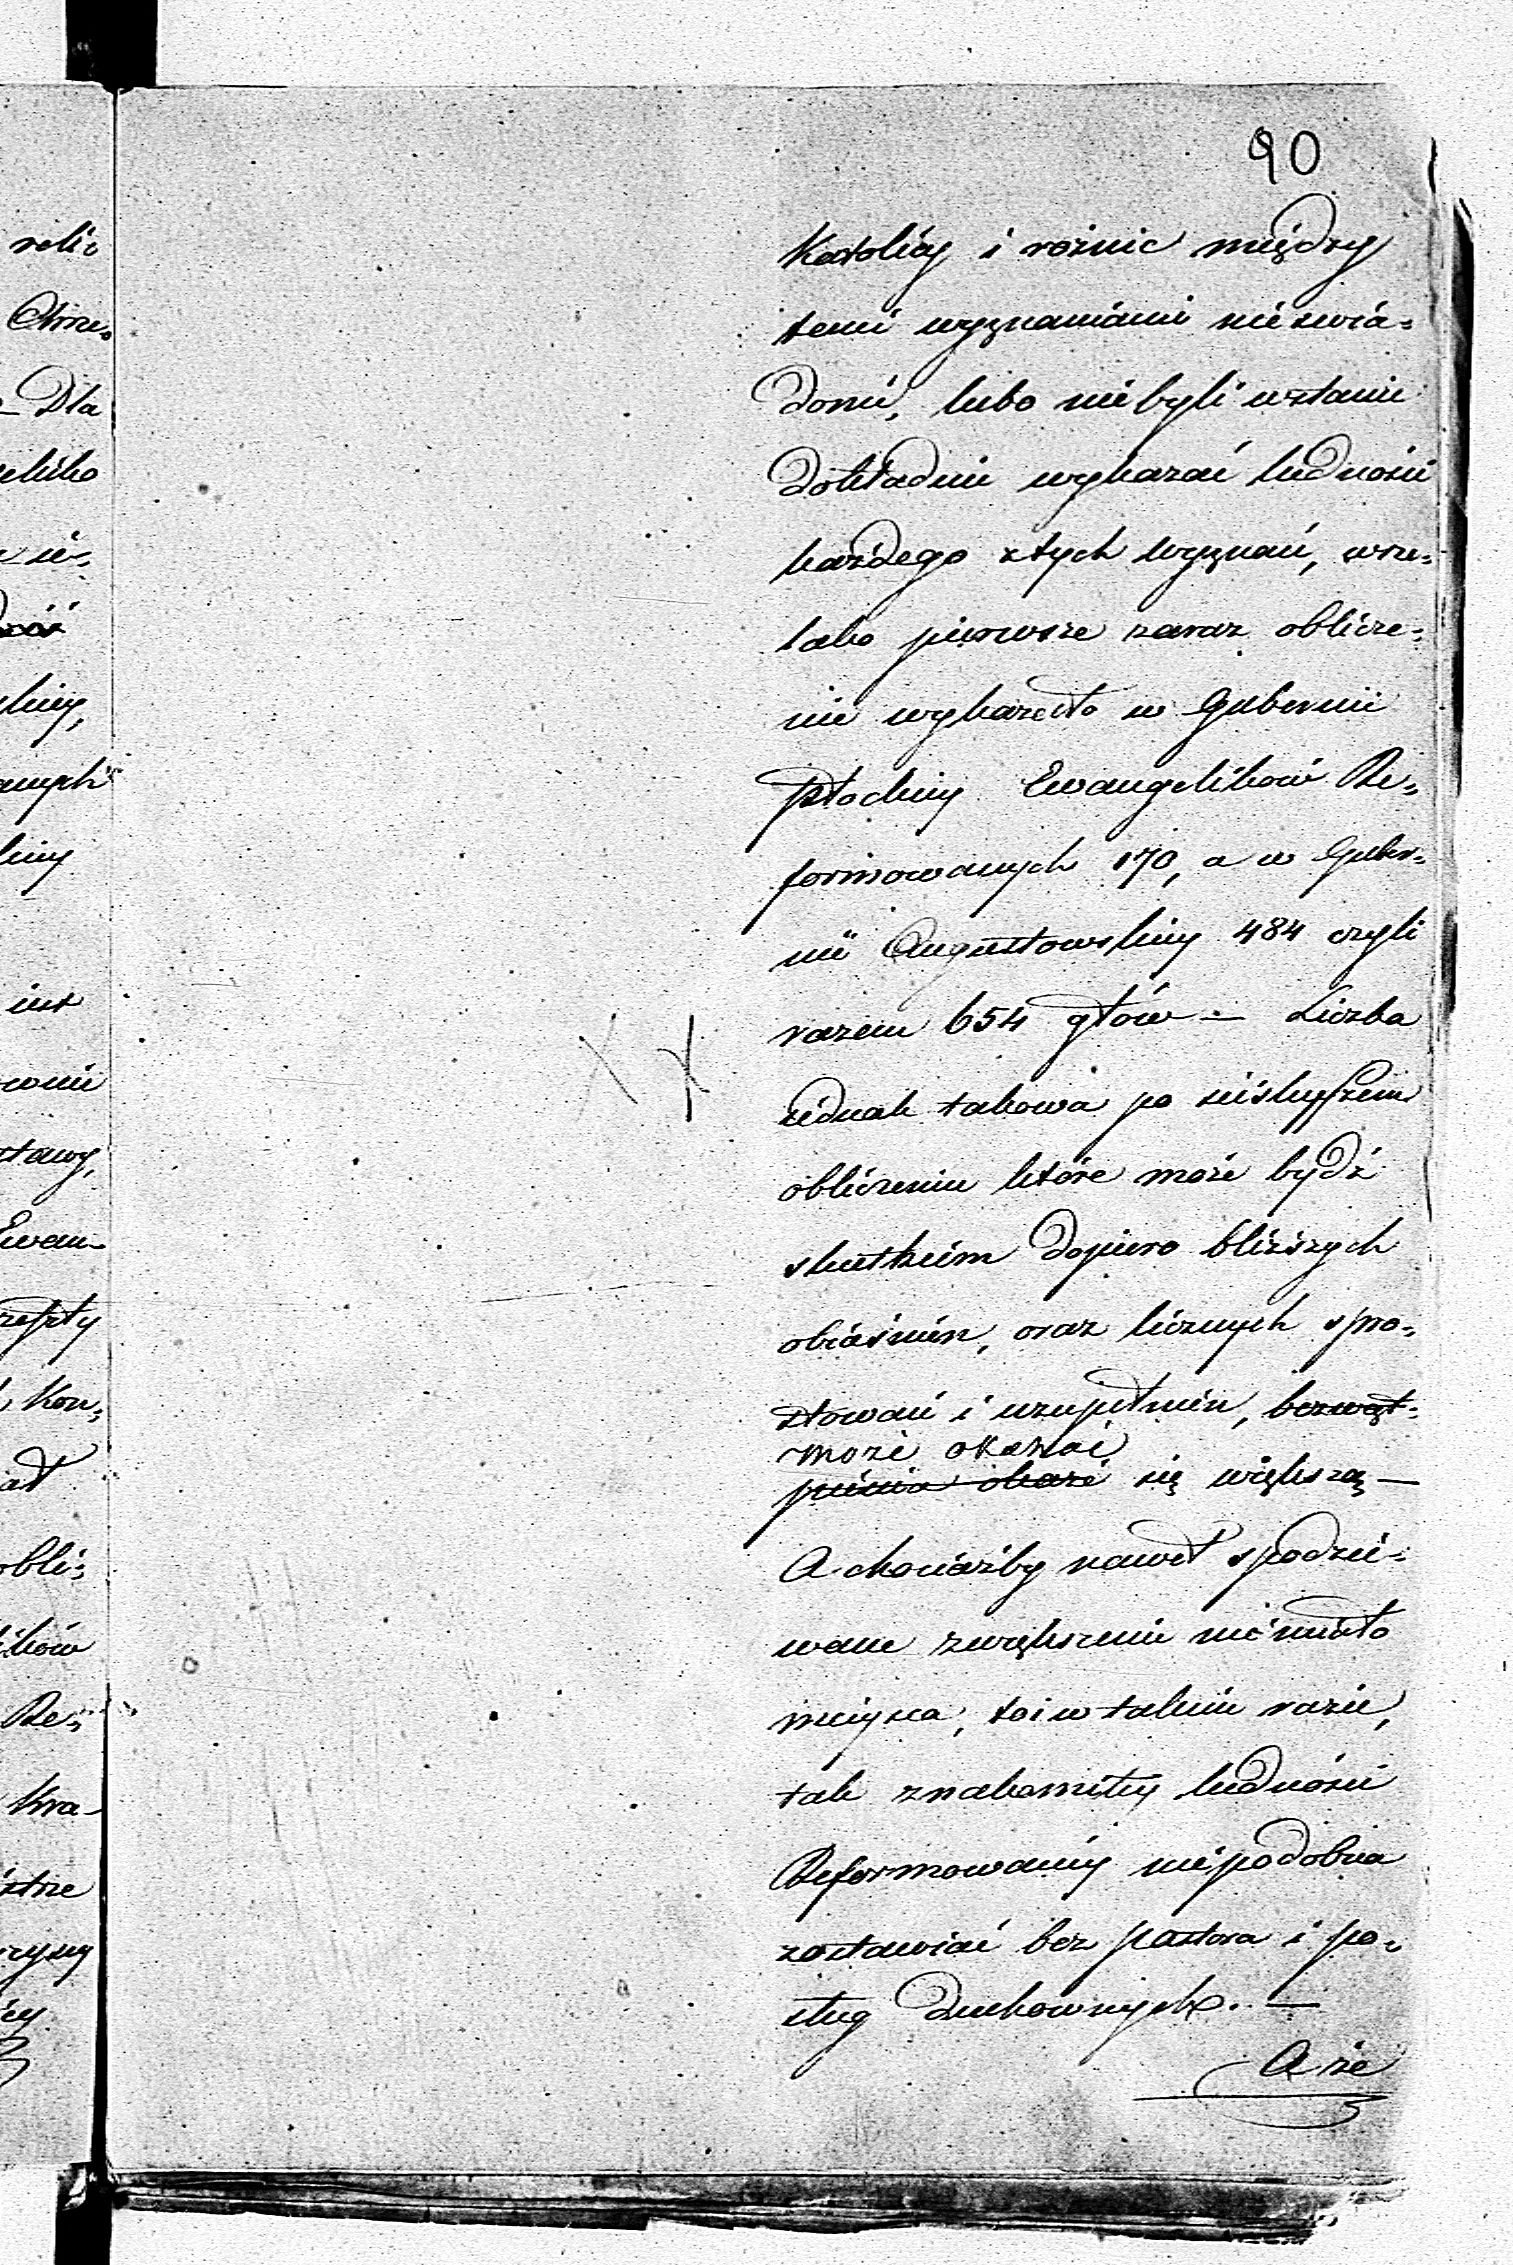 90
Katolicy i rożnic między
temi wyznaniami nieswia-
domi, lubo nie byli wstanie
dokładnie wykazać ludności
każdego ztych wyznań, wsze-
lako pierwsze zaraz oblicze-
nie wykazało w Gubernii
Płockiey Ewangelików Re-
formowanych 170, a w Guber-
nii Augustowskiey 484 czyli
razem 654 głów — Liczba
jednak takowa po ściślejszem
obliczeniu które może bydź
skutkiem dopiero bliższych
obiaśnień, oraz licznych spro-
stowań i uzupełnień, bezwąt-
może okazać
pienia okaże się większą —
A chociażby nawet spodzie-
wane zwiększenie niemiało
mieysca, to i w takim razie,
tak znakomitey ludności
Reformowaney niepodobna
zostawiać bez pastora i po-
sług duchownych. —
A że
reli-
Chrze-
Dla
Ewan-
Kon-
obli-
ików
Re-
Kra-